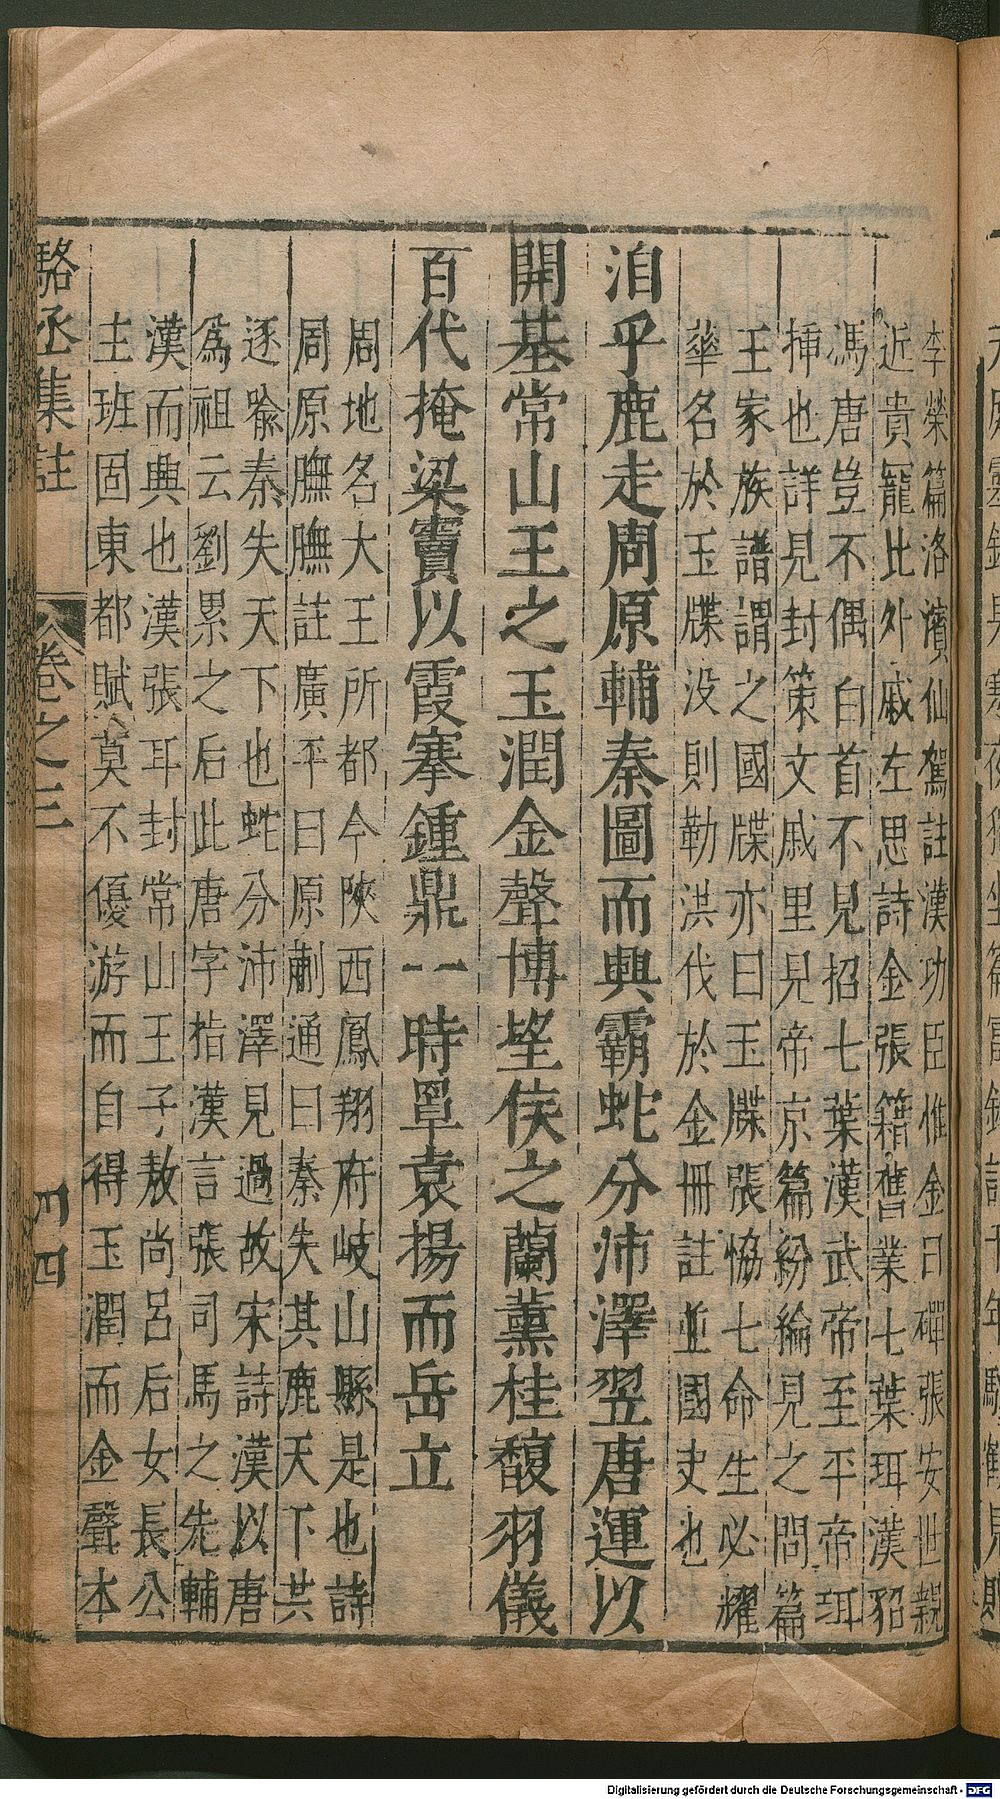 李榮篇洛濱仙駕註漢功臣惟金日磾張安世親
近貴寵比外戚左思詩金張籍舊業七葉珥漢貂
馮唐豈不偶白首不見招七葉漢武帝至平帝珥
挿也詳見封策文戚里見帝京篇紛綸見之問篇
王家族譜謂之國牒亦曰玉牒張協七命生必耀
華名於玉牒没則勒洪伐於金冊註並國史也
洎乎鹿走周原輔秦圖而興霸蛇分沛澤翌唐運以
開基常山王之玉潤金聲博望侯之蘭薰桂馥羽儀
百代掩梁竇以霞搴鍾鼎一時罩袁揚而岳立
周地名大王所都今陝西鳳翔府岐山縣是也詩
周原膴膴註廣平曰原蒯通曰秦失其鹿天下共
逐喩秦失天下也蛇分沛澤見過故宋詩漢以唐
爲祖云劉累之后此唐字指漢言張司馬之先輔
漢而興也漢張耳封常山王子敖尚呂后女長公
主班固東都賦莫不優游而自得玉潤而金聲本
駱丞集註 卷之三 四四
Digitalisierung gefördert durch die Deutsche Forschungsgemeinschaft - DFG